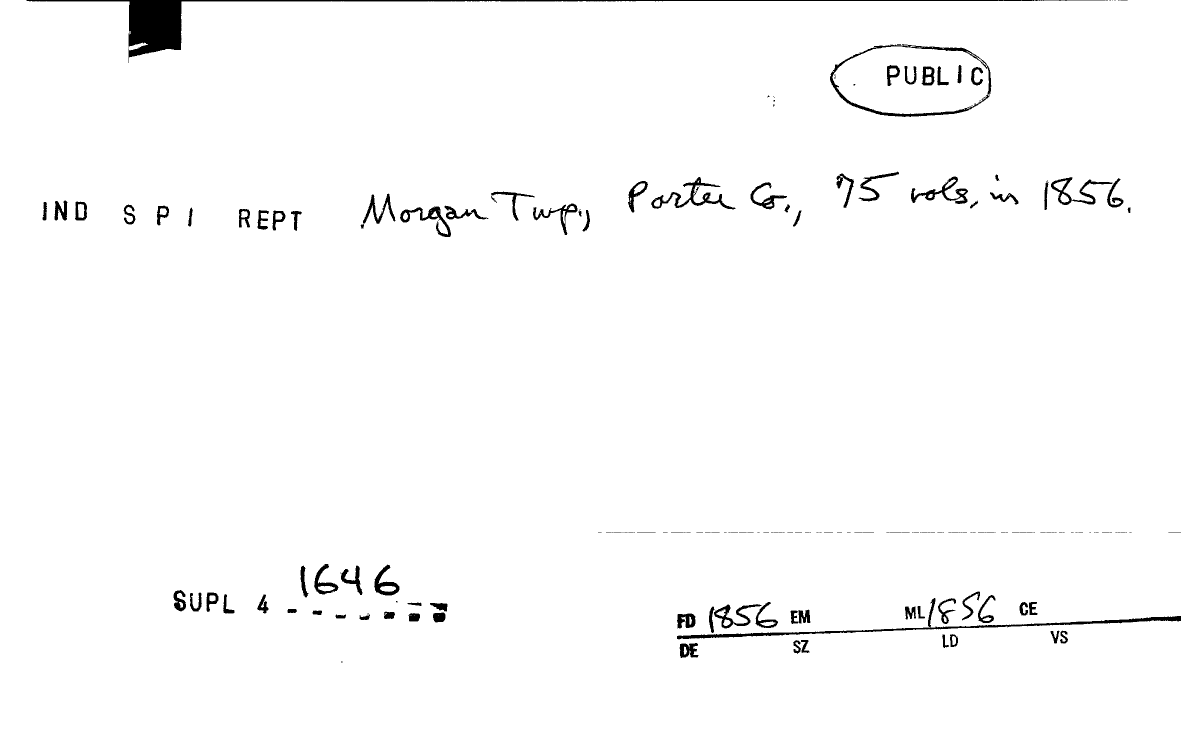 PUBLIC
IND S P I REPT Morgan Twp., Porter Co., 75 vols, in 1856.
SUPL 4 1646
FD 1856 EM ML 1856 CE
DE SZ LD VS